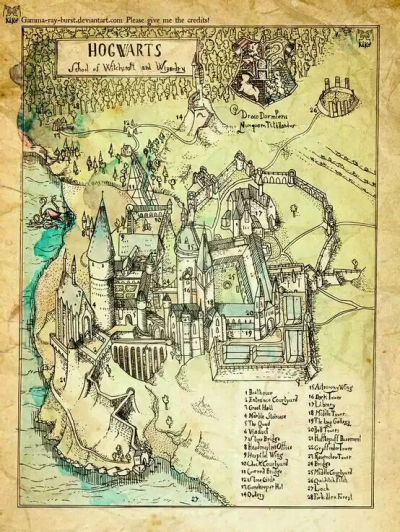 Gamma-ray-burst.deviantart.com Please give me the credits!
HOGWARTS
School of Witchcraft and Wizardry
Draco Dormiens
Nunquam Titillandus
1 Boathouse
2 Entrance Courtyard
3 Great Hall
4 Marble Staircase
5 The Quad
6 Viaduct
7 Stone Bridge
8 Headmaster's Office
9 Hospital Wing
10 Clock Courtyard
11 Covered Bridge
12 Stone Circle
13 Gamekeeper Hut
14 Owlery
15 Astronomy Wing
16 Dark Tower
17 Library
18 Middle Tower
19 The Long Gallery
20 Bell Towers
21 Hufflepuff Basement
22 Gryffindor Tower
23 Ravenclaw Tower
24 Bridge
25 Middle Courtyard
26 Quidditch Pitch
27 Loch
28 Forbidden Forest